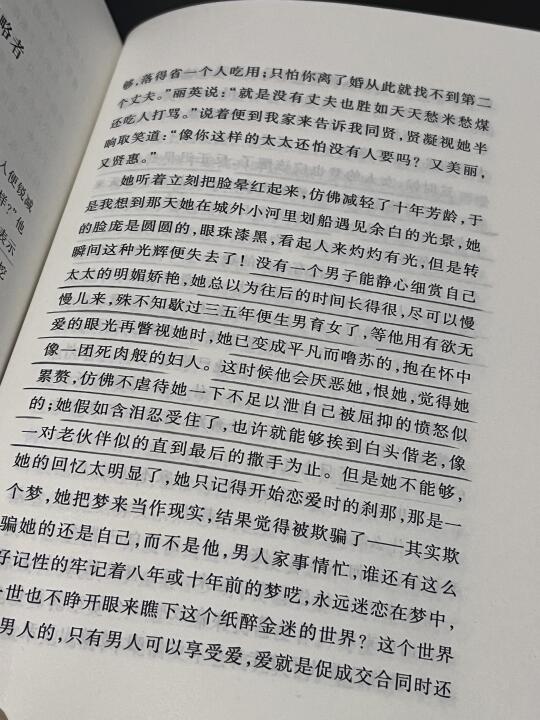 略者
人便锐减
样？”他
表示
够，落得省一个人吃用；只怕你离了婚从此就找不到第二
个丈夫。”丽英说：“就是没有丈夫也胜如天天愁米愁煤
还吃人打骂。”说着便到我家来告诉我同贤，贤凝视她半
响取笑道：“像你这样的太太还怕没有人要吗？又美丽，
又贤惠。”
她听着立刻把脸晕红起来，仿佛减轻了十年芳龄，于
是我想到那天她在城外小河里划船遇见余白的光景，她
的脸庞是圆圆的，眼珠漆黑，看起人来灼灼有光，但是转
瞬间这种光辉便失去了！没有一个男子能静心细赏自己
太太的明媚娇艳，她总以为往后的时间长得很，尽可以慢
慢儿来，殊不知歇过三五年便生男育女了，等他用有欲无
爱的眼光再瞥视她时，她已变成平凡而噜苏的，抱在怀中
像一团死肉般的妇人。这时候他会厌恶她，恨她，觉得她
累赘，仿佛不虐待她一下不足以泄自己被屈抑的愤怒似
的；她假如含泪忍受住了，也许就能够挨到白头偕老，像
一对老伙伴似的直到最后的撒手为止。但是她不能够，
她的回忆太明显了，她只记得开始恋爱时的刹那，那是一
个梦，她把梦来当作现实，结果觉得被欺骗了——其实欺
骗她的还是自己，而不是他，男人家事情忙，谁还有这么
好记性的牢记着八年或十年前的梦呓，永远迷恋在梦中，
一世也不睁开眼来瞧下这个纸醉金迷的世界？这个世界
男人的，只有男人可以享受爱，爱就是促成交合同时还